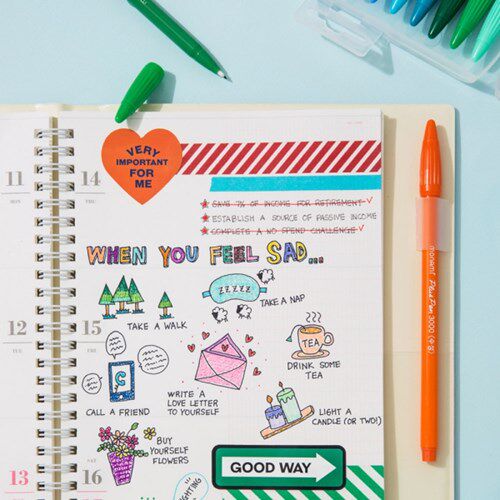 VERY
IMPORTANT
FOR
ME
11
MON
14
THU
★ SAVE 7% OF INCOME FOR RETIREMENT ✓
★ ESTABLISH A SOURCE OF PASSIVE INCOME
★ COMPLETE A NO SPEND CHALLENGE ✓
WHEN YOU FEEL SAD...
ZZZZZ
TAKE A NAP
TAKE A WALK
12
TUE
15
FRI
TEA
DRINK SOME
TEA
CALL A FRIEND
WRITE A
LOVE LETTER
TO YOURSELF
LIGHT A
CANDLE (OR TWO!)
BUY
YOURSELF
FLOWERS
13
16
GOOD WAY
monami Plus Pen 3000